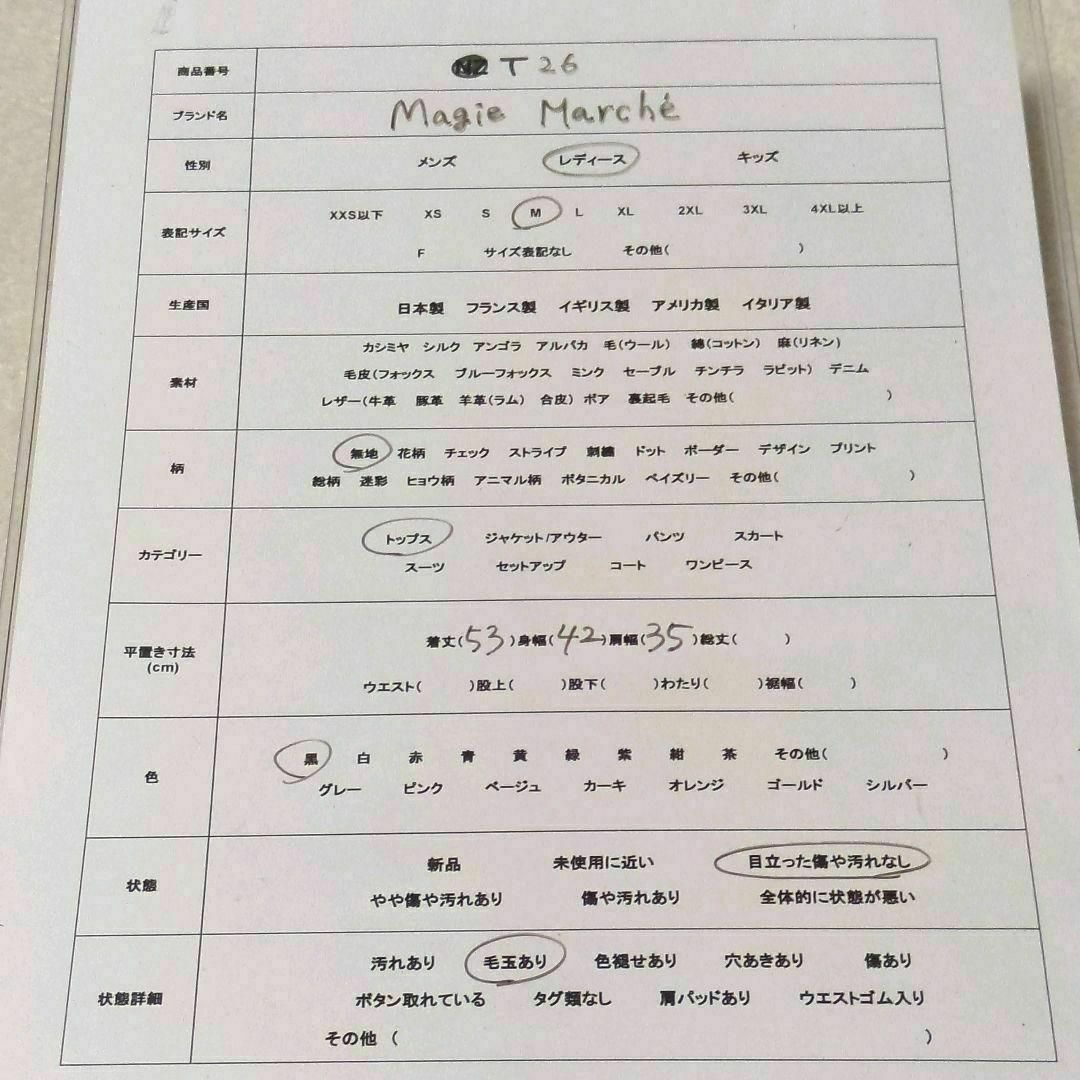 商品番号 T26
ブランド名 Magie Marché
性別 メンズ レディース キッズ
表記サイズ XXS以下 XS S M L XL 2XL 3XL 4XL以上
F サイズ表記なし その他( )
生産国 日本製 フランス製 イギリス製 アメリカ製 イタリア製
素材 カシミヤ シルク アンゴラ アルパカ 毛(ウール) 綿(コットン) 麻(リネン)
毛皮(フォックス ブルーフォックス ミンク セーブル チンチラ ラビット) デニム
レザー(牛革 豚革 羊革(ラム) 合皮) ボア 裏起毛 その他( )
柄 無地 花柄 チェック ストライプ 刺繍 ドット ボーダー デザイン プリント
総柄 迷彩 ヒョウ柄 アニマル柄 ボタニカル ペイズリー その他( )
カテゴリー トップス ジャケット/アウター パンツ スカート
スーツ セットアップ コート ワンピース
平置き寸法 着丈(53)身幅(42)肩幅(35)総丈( )
(cm) ウエスト( )股上( )股下( )わたり( )裾幅( )
色 黒 白 赤 青 黄 緑 紫 紺 茶 その他( )
グレー ピンク ベージュ カーキ オレンジ ゴールド シルバー
状態 新品 未使用に近い 目立った傷や汚れなし
やや傷や汚れあり 傷や汚れあり 全体的に状態が悪い
状態詳細 汚れあり 毛玉あり 色褪せあり 穴あきあり 傷あり
ボタン取れている タグ類なし 肩パッドあり ウエストゴム入り
その他 ( )